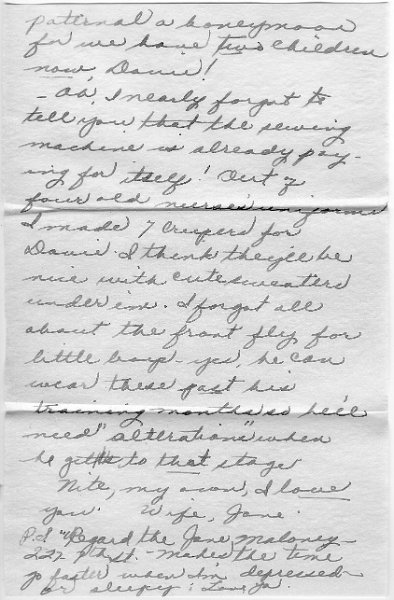 paternal a honeymoon
for we have two children
now, Davie!
- Oh, I nearly forgot to
tell you that the sewing
machine is already pay-
ing for itself! Out of
four old nurses uniforms
I made 7 creepers for
Davie. I think they'll be
nice with cute sweaters
under 'em. I forgot all
about the front fly for
little boys - yes, he can
wear these past his
training months so he'll
need "alterations" when
he gets to that stage
Nite, my own, I love
you. Wife, Jane.
P.S. Regard the Jane Maloney -
227 P - makes the time
go faster when I'm depressed -
or sleepy! Love, Ja.